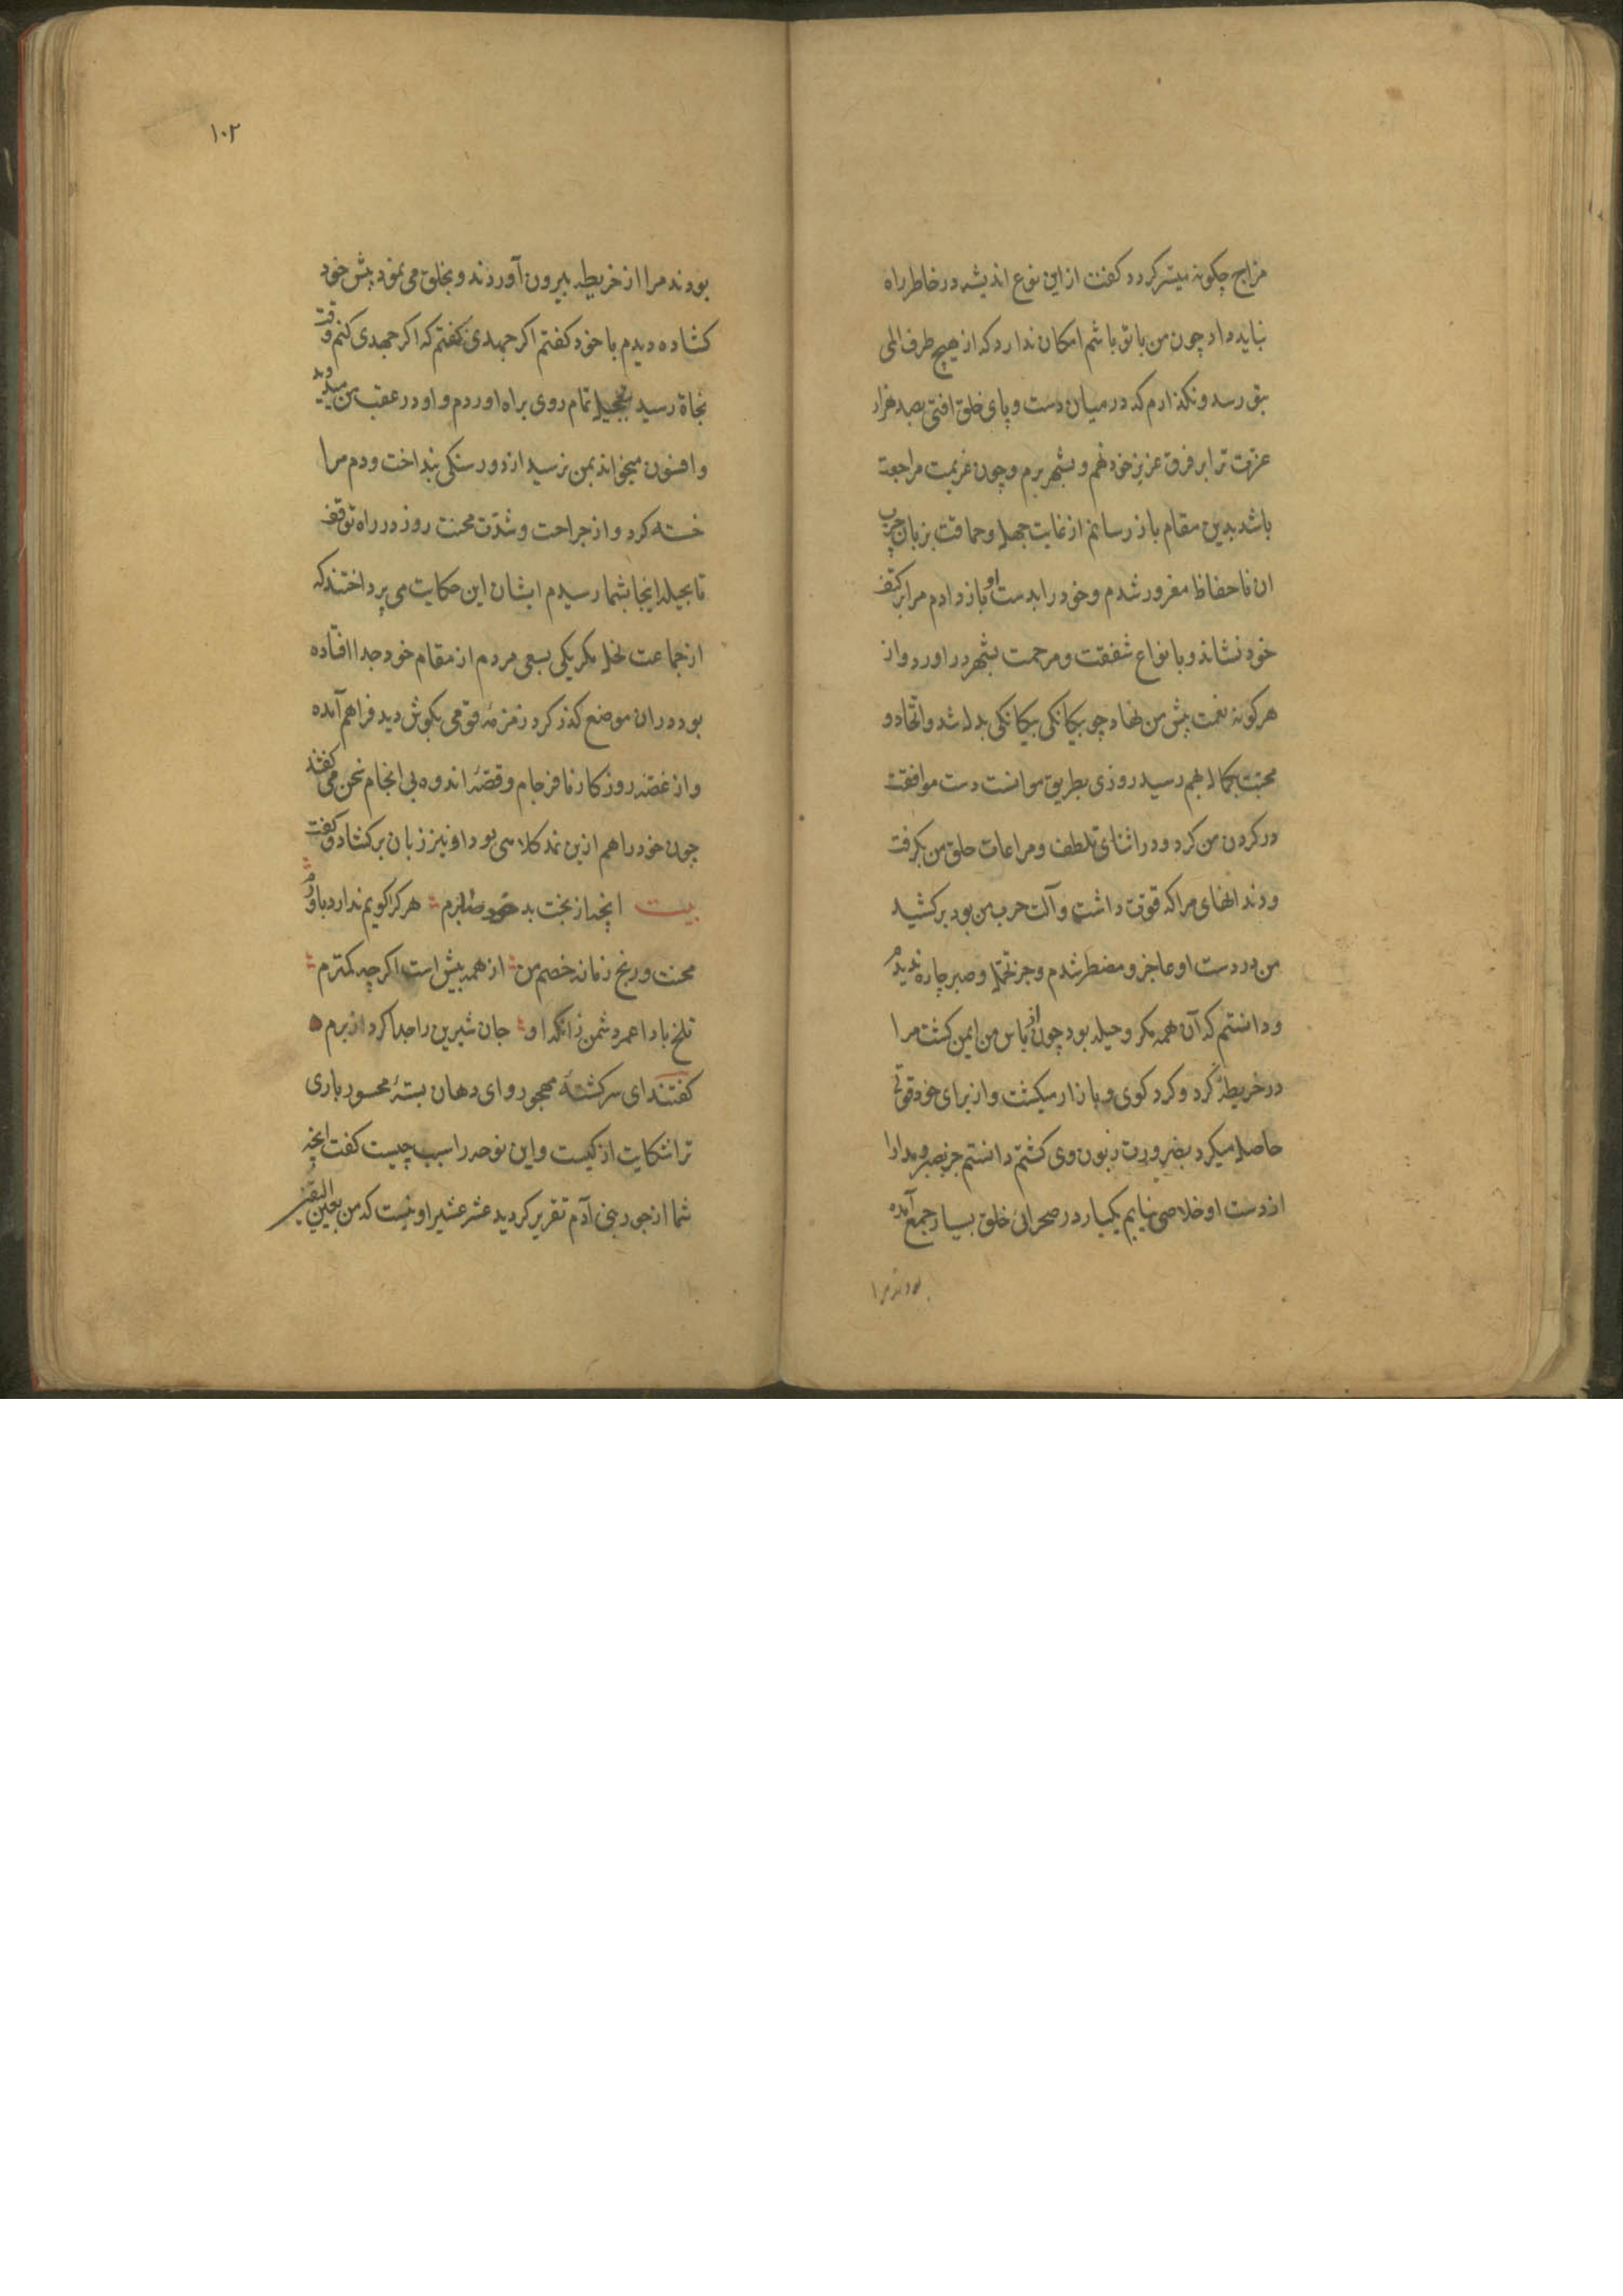 مزاج چکونه میسّر کردد کفت از این نوع اندیشه در خاطر راه
نباید داد چون من با تو باشم امکان ندارد که از هیچ طرف المی
بتو رسد و نکذارم که در میان دست و پای خلق افتی بصد هزار
عزت ترا بر فرق عزیز خود نهم و بشهر برم و چون عزیمت مراجعت
باشد بدین مقام باز رسانم از غایت جهل و حماقت بزبان چرب
ان ناحفاظ مغرور شدم و خود را بدست او باز دادم مرا بر کتف
خود نشاند و بانواع شفقت و مرحمت بشهر در اورد و از
هر کونه نعمت پیش من نهاد چو بیکانکی بیکانکی بدل شد و اتحاد و
محبت بکمال انجم رسید روزی بطریق موانست دست موافقت
در کردن من کرد و در اثنای تلطف و مراعات حلق من بکرفت
و دندانهای مرا که قوت داشتم و آلت حرب من بود برکشید
من در دست او عاجز و مضطر شدم و جز تحمل و صبر چاره ندیدم
و دانستم که آن همه مکر و حیله بود چون از باس من ایمن کشت مرا
در خریطه کرد و کرد کوی و بازار میکشت و از برای خود قوتی
حاصل میکرد بضرورت زبون وی کشتم دانستم جز بصبر و مدارا
از دست او خلاصی نیابم یکبار در صحرائی خلق بسیار جمع آمده
بودند مرا
۱۰۲
بودند مرا از خریطه بیرون آوردند و بخلق می نمود پیش خود
کشاده دیدم با خود کفتم اکر جهدی کفتم که اکر جهدی کنم وقت
نجاة رسید بتعجیل تمام روی براه اوردم و او در عقب من میدوید
و افسون میخواند بمن نرسید از دور سنکی بنداخت و دم مرا
خسته کرد و از جراحت و شدّت محنت روز در راه توقف
تا بحیله اینجا بشما رسیدم ایشان این حکایت می پرداختند که
از جماعت نحل مکر یکی بسعی مردم از مقام خود جدا افتاده
بود در ان موضع کذر کرد زمزمه قومی بکوش دید فراهم آمده
و از غصّه روزکار نافرجام و قصّهٔ اندوه بی انجام سخن می کفتند
چون خود را هم ازین نمد کلاهی بود او نیز زبان برکشاد و کفت
بیت انچه از بخت بد خود صابرم هر کرا کویم ندارد باورم
محنت و رنج زمانه خصم من از همه بیش است اکر چه کمترم
تلخ بادا عمر دشمن زانکه او جان شیرین را جدا کرد از برم
کفتند ای سرکشتهٔ مهجور و ای دهان بستهٔ محسور باری
ترا شکایت از کیست و این نوحه را سبب چیست کفت انچه
شما از جور بنی آدم تقریر کردید عشر عشیر او نیست که من بعین الیقین